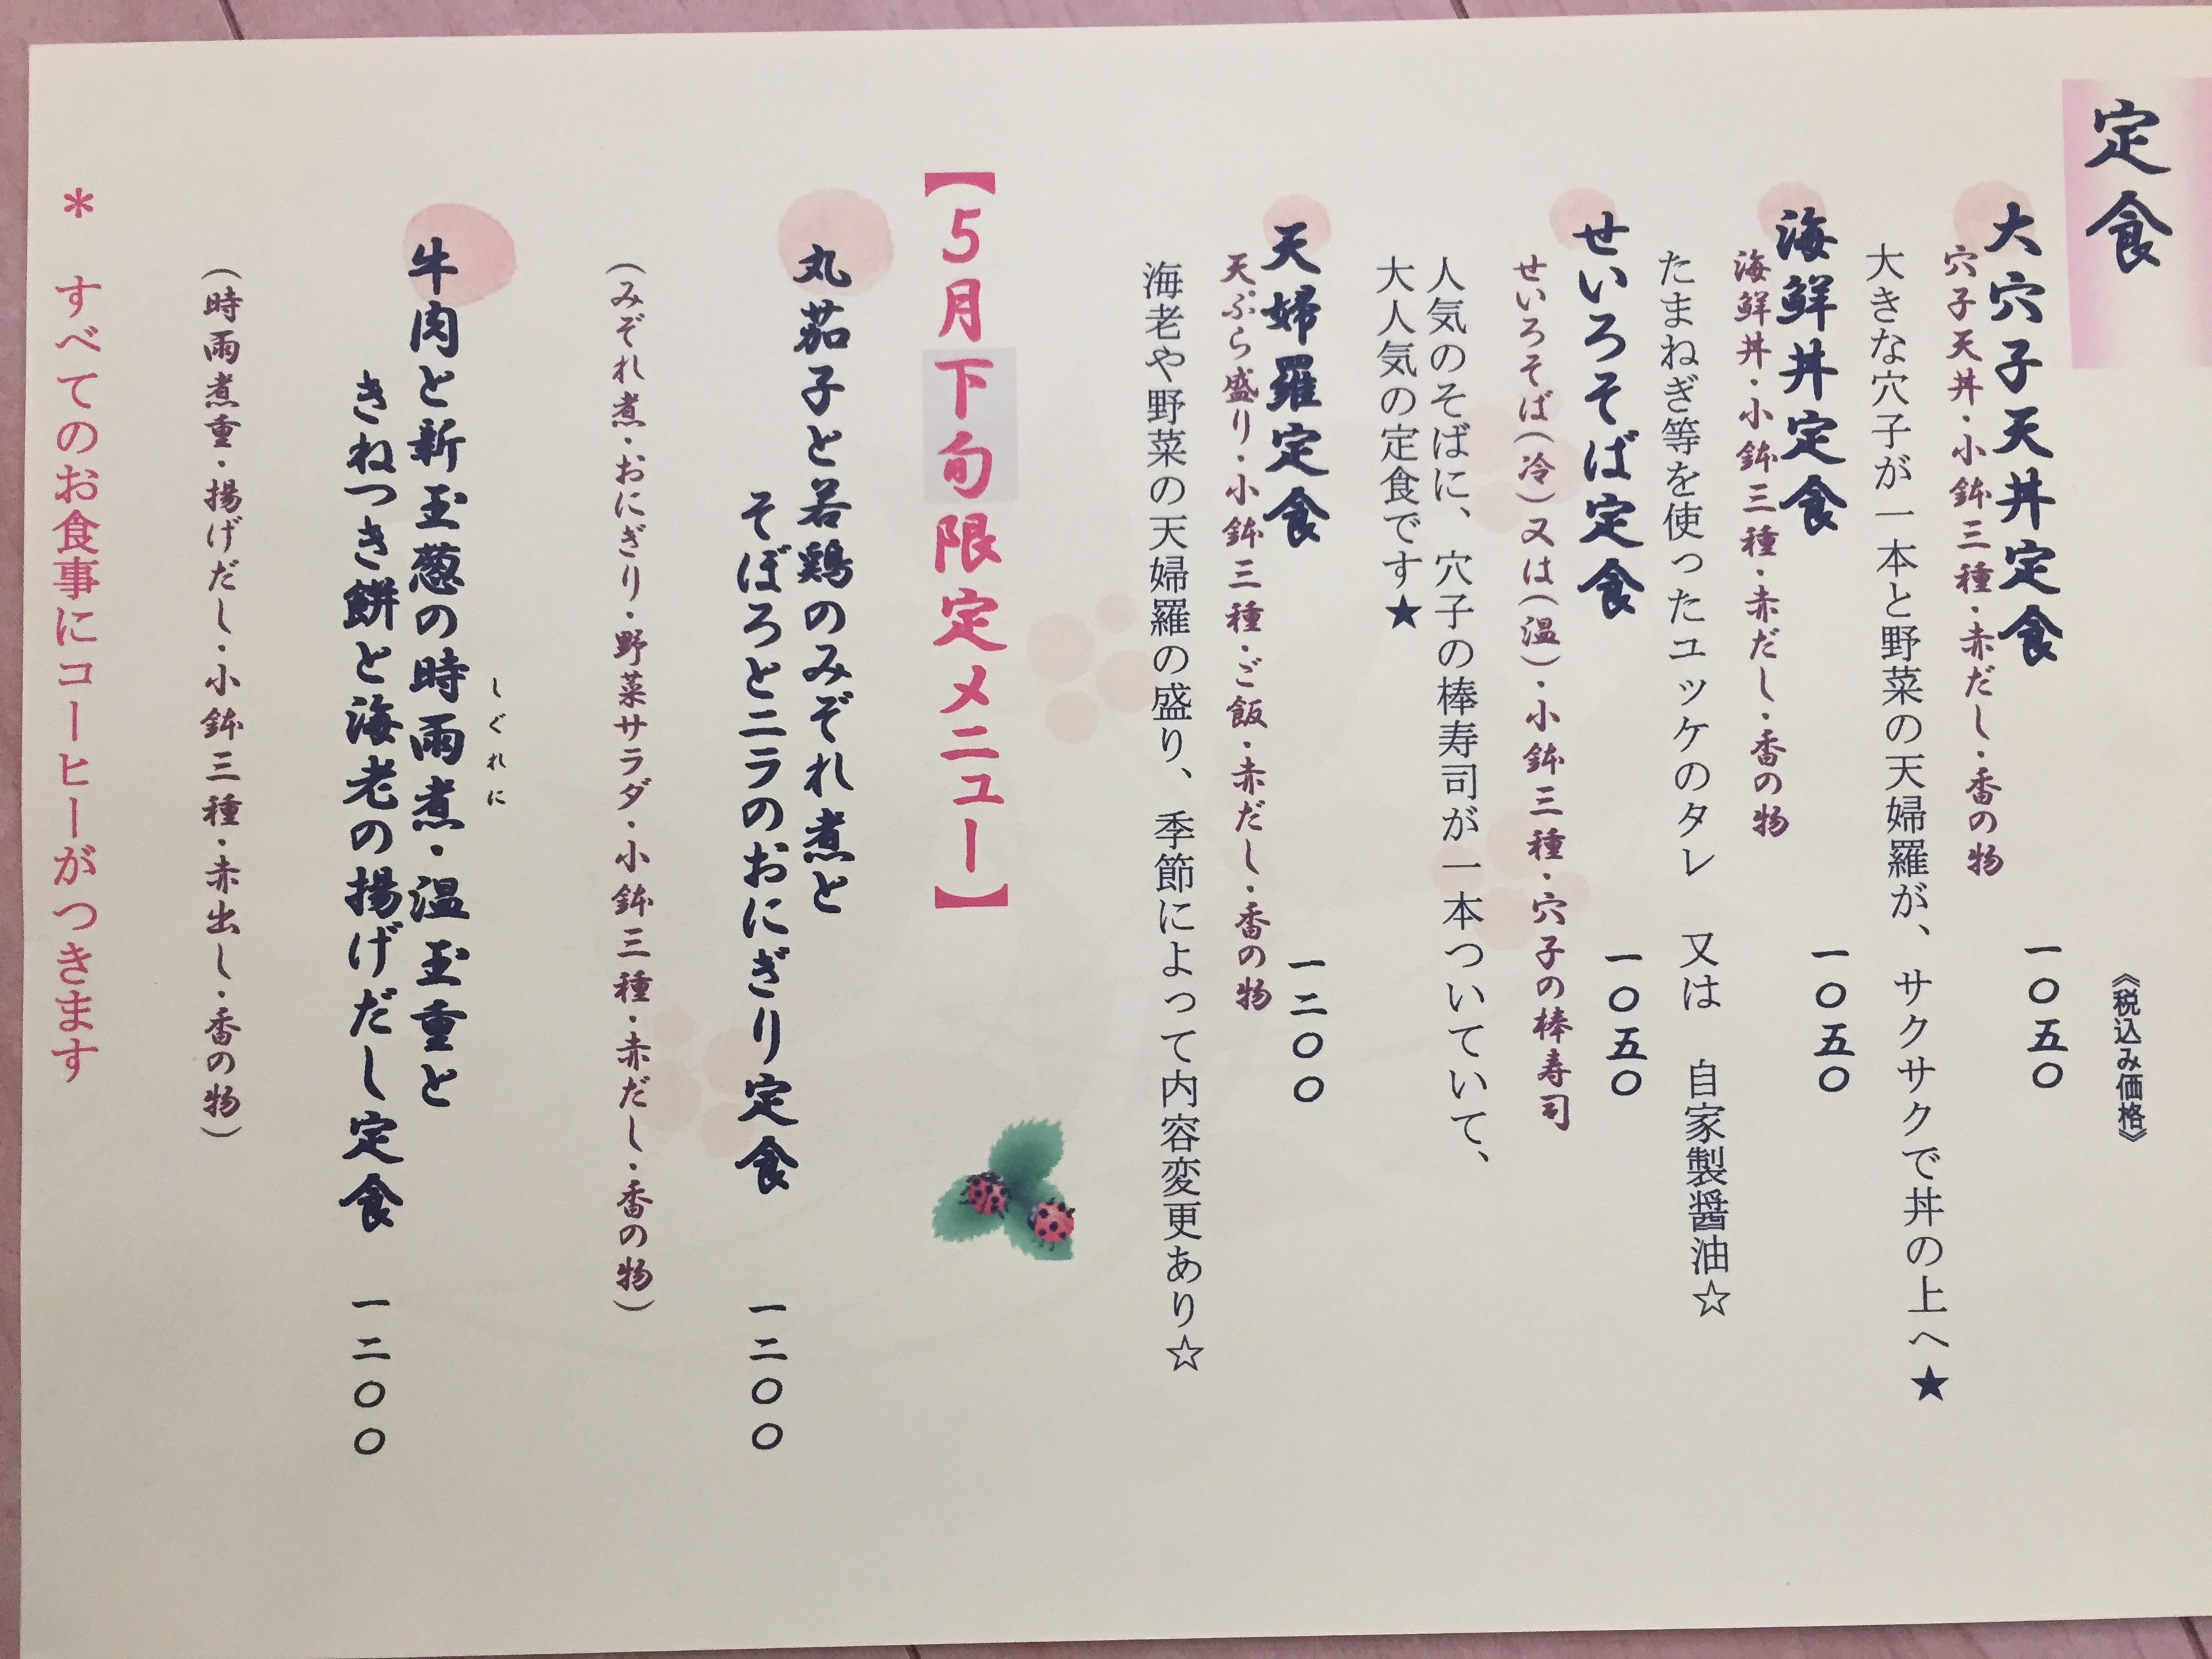 定食
《税込み価格》
大穴子天丼定食 一〇五〇
穴子天丼・小鉢三種・赤だし・香の物
大きな穴子が一本と野菜の天婦羅が、サクサクで丼の上へ★
海鮮丼定食 一〇五〇
海鮮丼・小鉢三種・赤だし・香の物
たまねぎ等を使ったユッケのタレ 又は 自家製醤油☆
せいろそば定食 一〇五〇
せいろそば(冷)又は(温)・小鉢三種・穴子の棒寿司
人気のそばに、穴子の棒寿司が一本ついていて、
大人気の定食です★
天婦羅定食 一二〇〇
天ぷら盛り・小鉢三種・ご飯・赤だし・香の物
海老や野菜の天婦羅の盛り、季節によって内容変更あり☆
【5月下旬限定メニュー】
丸茄子と若鶏のみぞれ煮と
そぼろとニラのおにぎり定食 一二〇〇
(みぞれ煮・おにぎり・野菜サラダ・小鉢三種・赤だし・香の物)
しぐれに
牛肉と新玉葱の時雨煮・温玉重と
きねつき餅と海老の揚げだし定食 一二〇〇
(時雨煮重・揚げだし・小鉢三種・赤出し・香の物)
＊ すべてのお食事にコーヒーがつきます